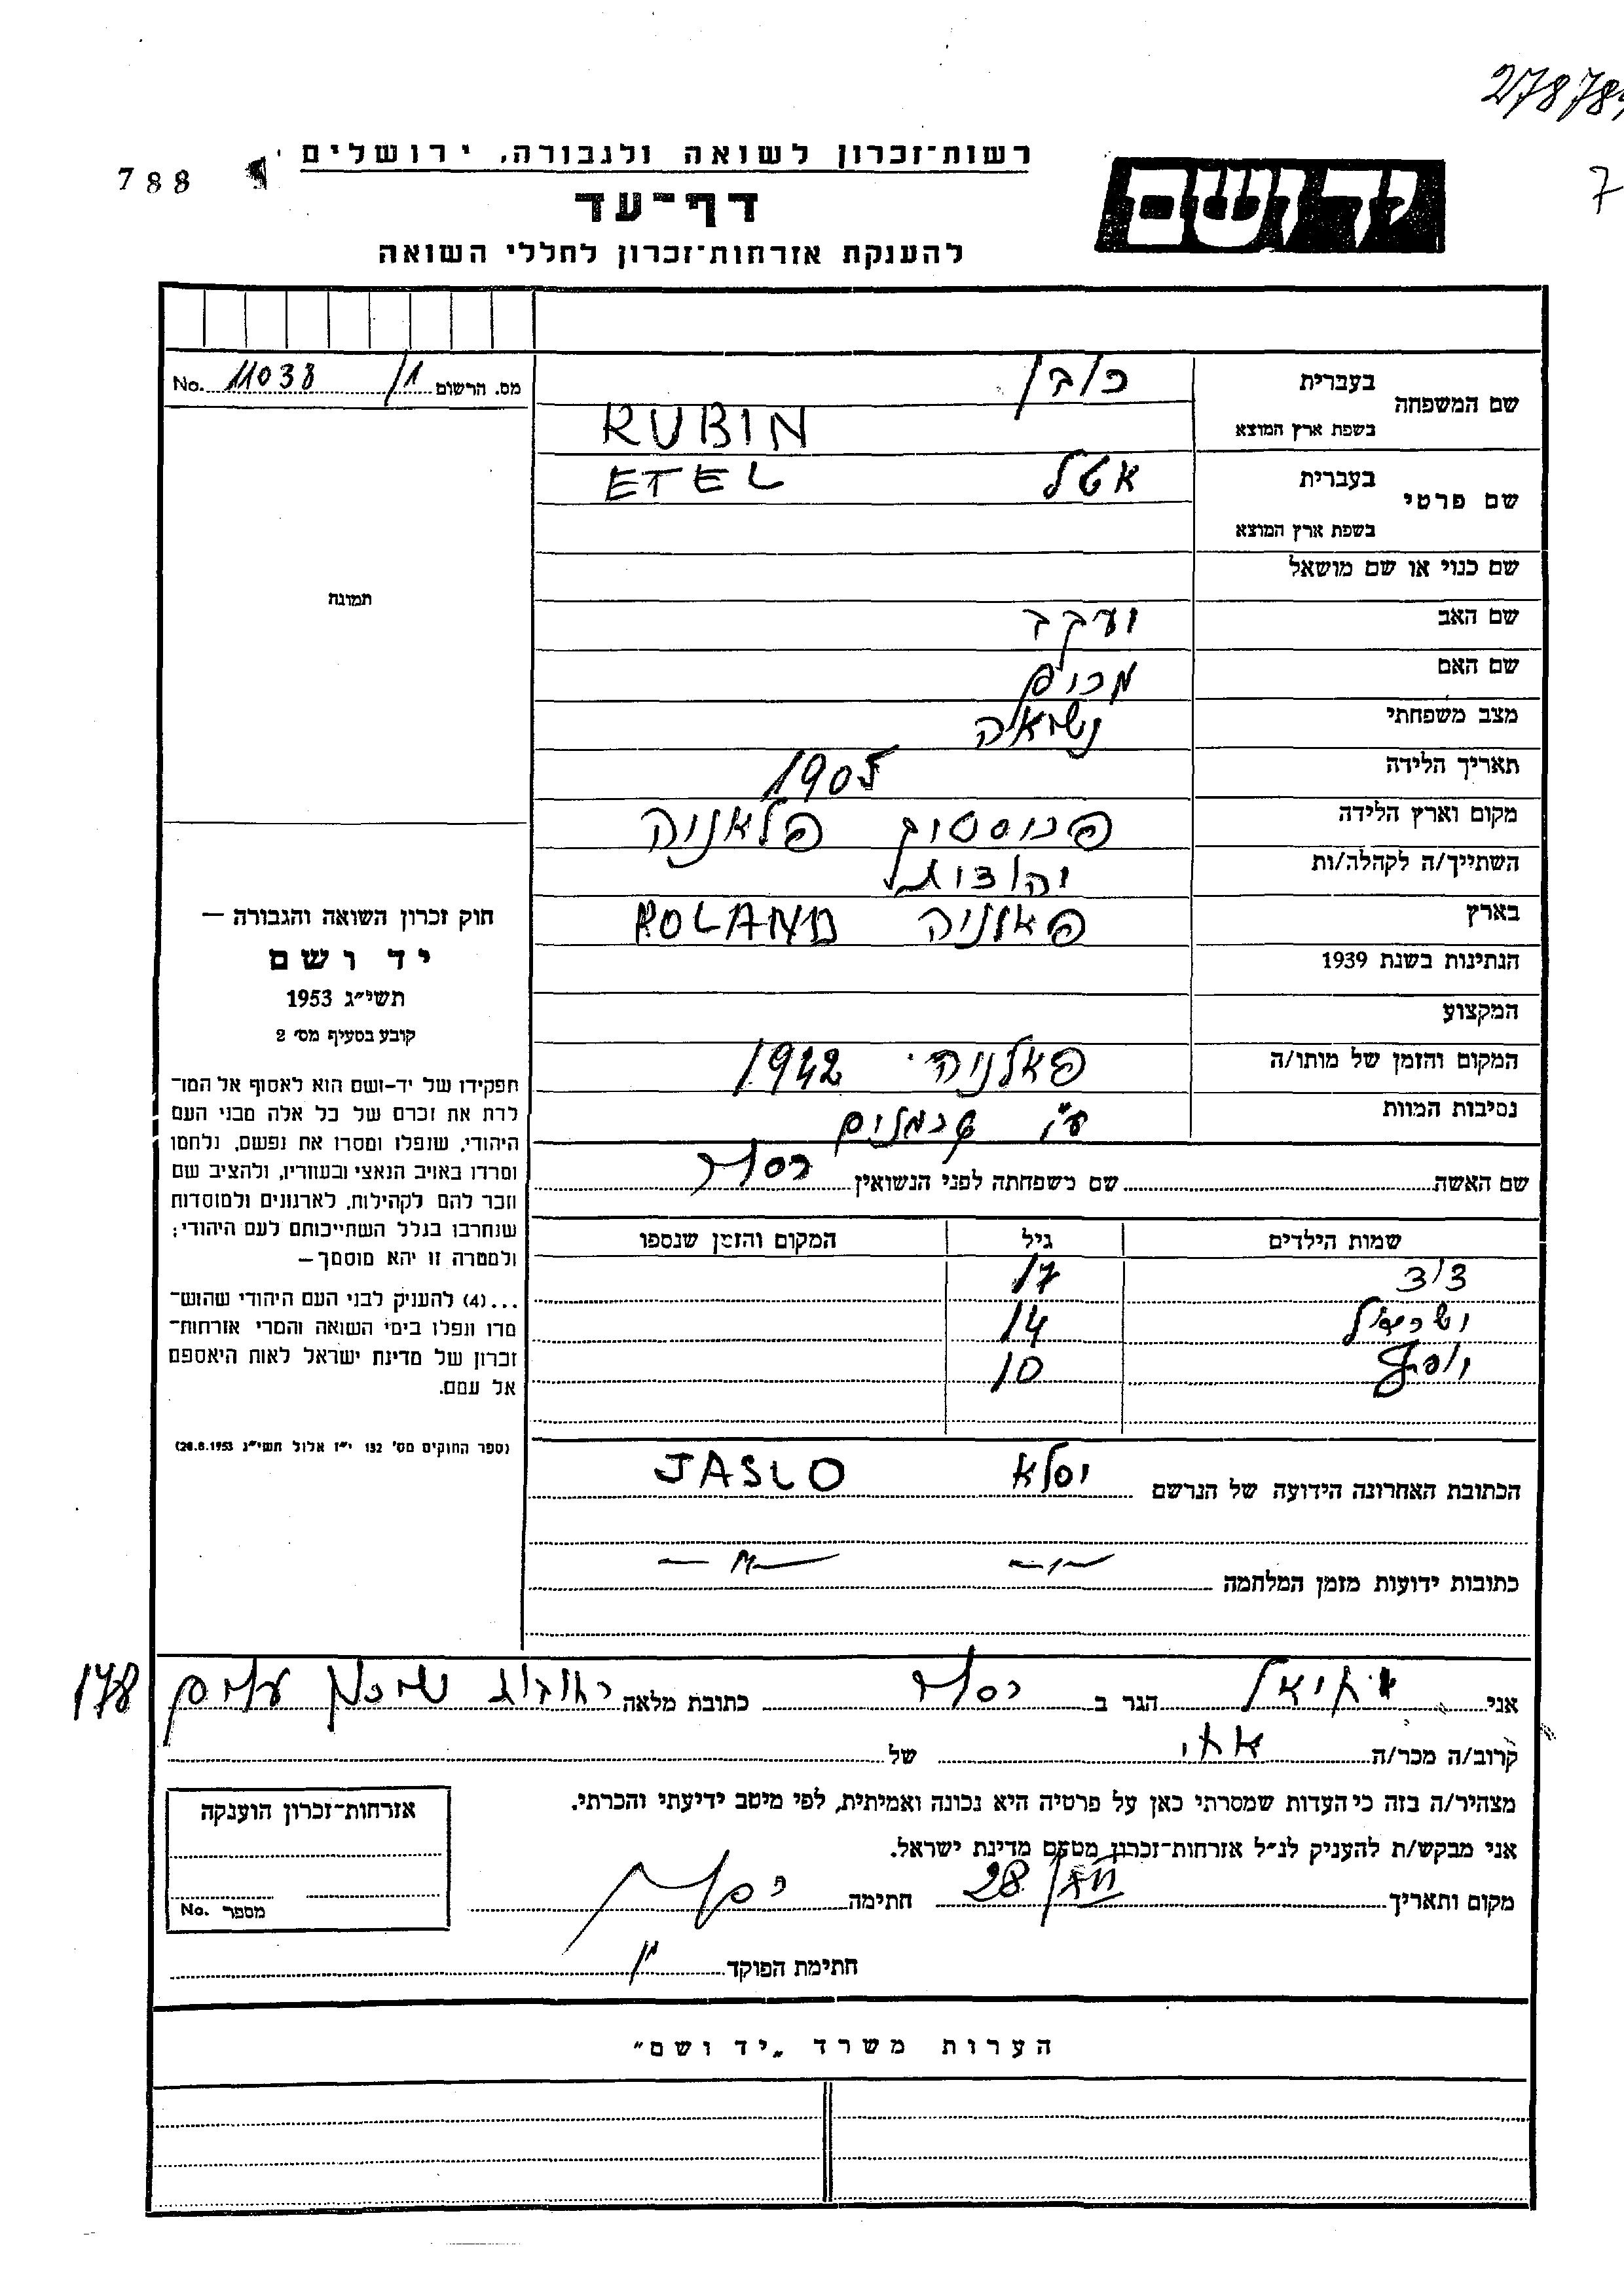 278784
7
788
רשות־זכרון לשואה ולגבורה, ירושלים
יד ושם
דף־עד
להענקת אזרחות־זכרון לחללי השואה
מס. הרשום 1/ 11038 No.
שם המשפחה
בעברית רובין
בשפת ארץ המוצא RUBIN
שם פרטי
בעברית אטל ETEL
בשפת ארץ המוצא
שם כנוי או שם מושאל
שם האב יעקב
שם האם מרים
מצב משפחתי נשואה
תאריך הלידה 1905
מקום וארץ הלידה פרוסטיק פלאניה
השתייך/ה לקהלה/ות יהודית
בארץ פאלניה POLAND
הנתינות בשנת 1939
המקצוע
המקום והזמן של מותו/ה פאלניה 1942
נסיבות המוות ע"י גרמנים
תמונה
חוק זכרון השואה והגבורה —
יד ושם
תשי״ג 1953
קובע בסעיף מס׳ 2
תפקידו של יד-ושם הוא לאסוף אל המו־
לדת את זכרם של כל אלה מבני העם
היהודי, שנפלו ומסרו את נפשם, נלחמו
ומרדו באויב הנאצי ובעוזריו, ולהציב שם
וזכר להם לקהילות, לארגונים ולמוסדות
שנחרבו בגלל השתייכותם לעם היהודי;
ולמטרה זו יהא מוסמך—
...(4) להעניק לבני העם היהודי שהוש־
מדו ונפלו בימי השואה והמרי אזרחות־
זכרון של מדינת ישראל לאות היאספם
אל עמם.
(ספר החוקים מס׳ 132 י״ז אלול תשי״ג 28.8.1953)
שם האשה שם משפחתה לפני הנשואין
שמות הילדים גיל המקום והזמן שנספו
דוד 17
ישראל 14
יוסף 10
הכתובת האחרונה הידועה של הנרשם יסלא JASLO
כתובות ידועות מזמן המלחמה — " — — " —
אני יחיאל הגר ב כתובת מלאה רחובות שיכון עמים 178
קרוב/ה מכר/ה אחי של
מצהיר/ה בזה כי העדות שמסרתי כאן על פרטיה היא נכונה ואמיתית, לפי מיטב ידיעתי והכרתי.
אני מבקש/ת להעניק לנ״ל אזרחות־זכרון מטעם מדינת ישראל.
מקום ותאריך 28/ חתימה
חתימת הפוקד
אזרחות־זכרון הוענקה
מספר No.
הערות משרד „יד ושם״